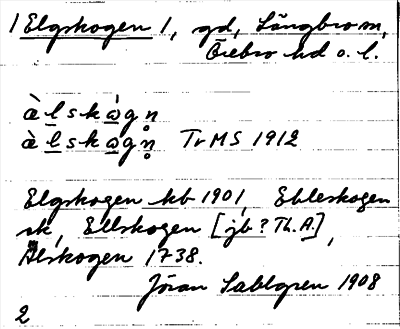 1 Elgskogen 1, gd, Längbro sn,
Örebro hd o. l.
à l s k à g n̥
à l s k a g n̥ TvMS 1912
Elgskogen kb 1901, Ebleskogen
sk, Ellskogen [jb? Th.A.],
Älskogen 1738.
Jöran Sahlgren 1908
2